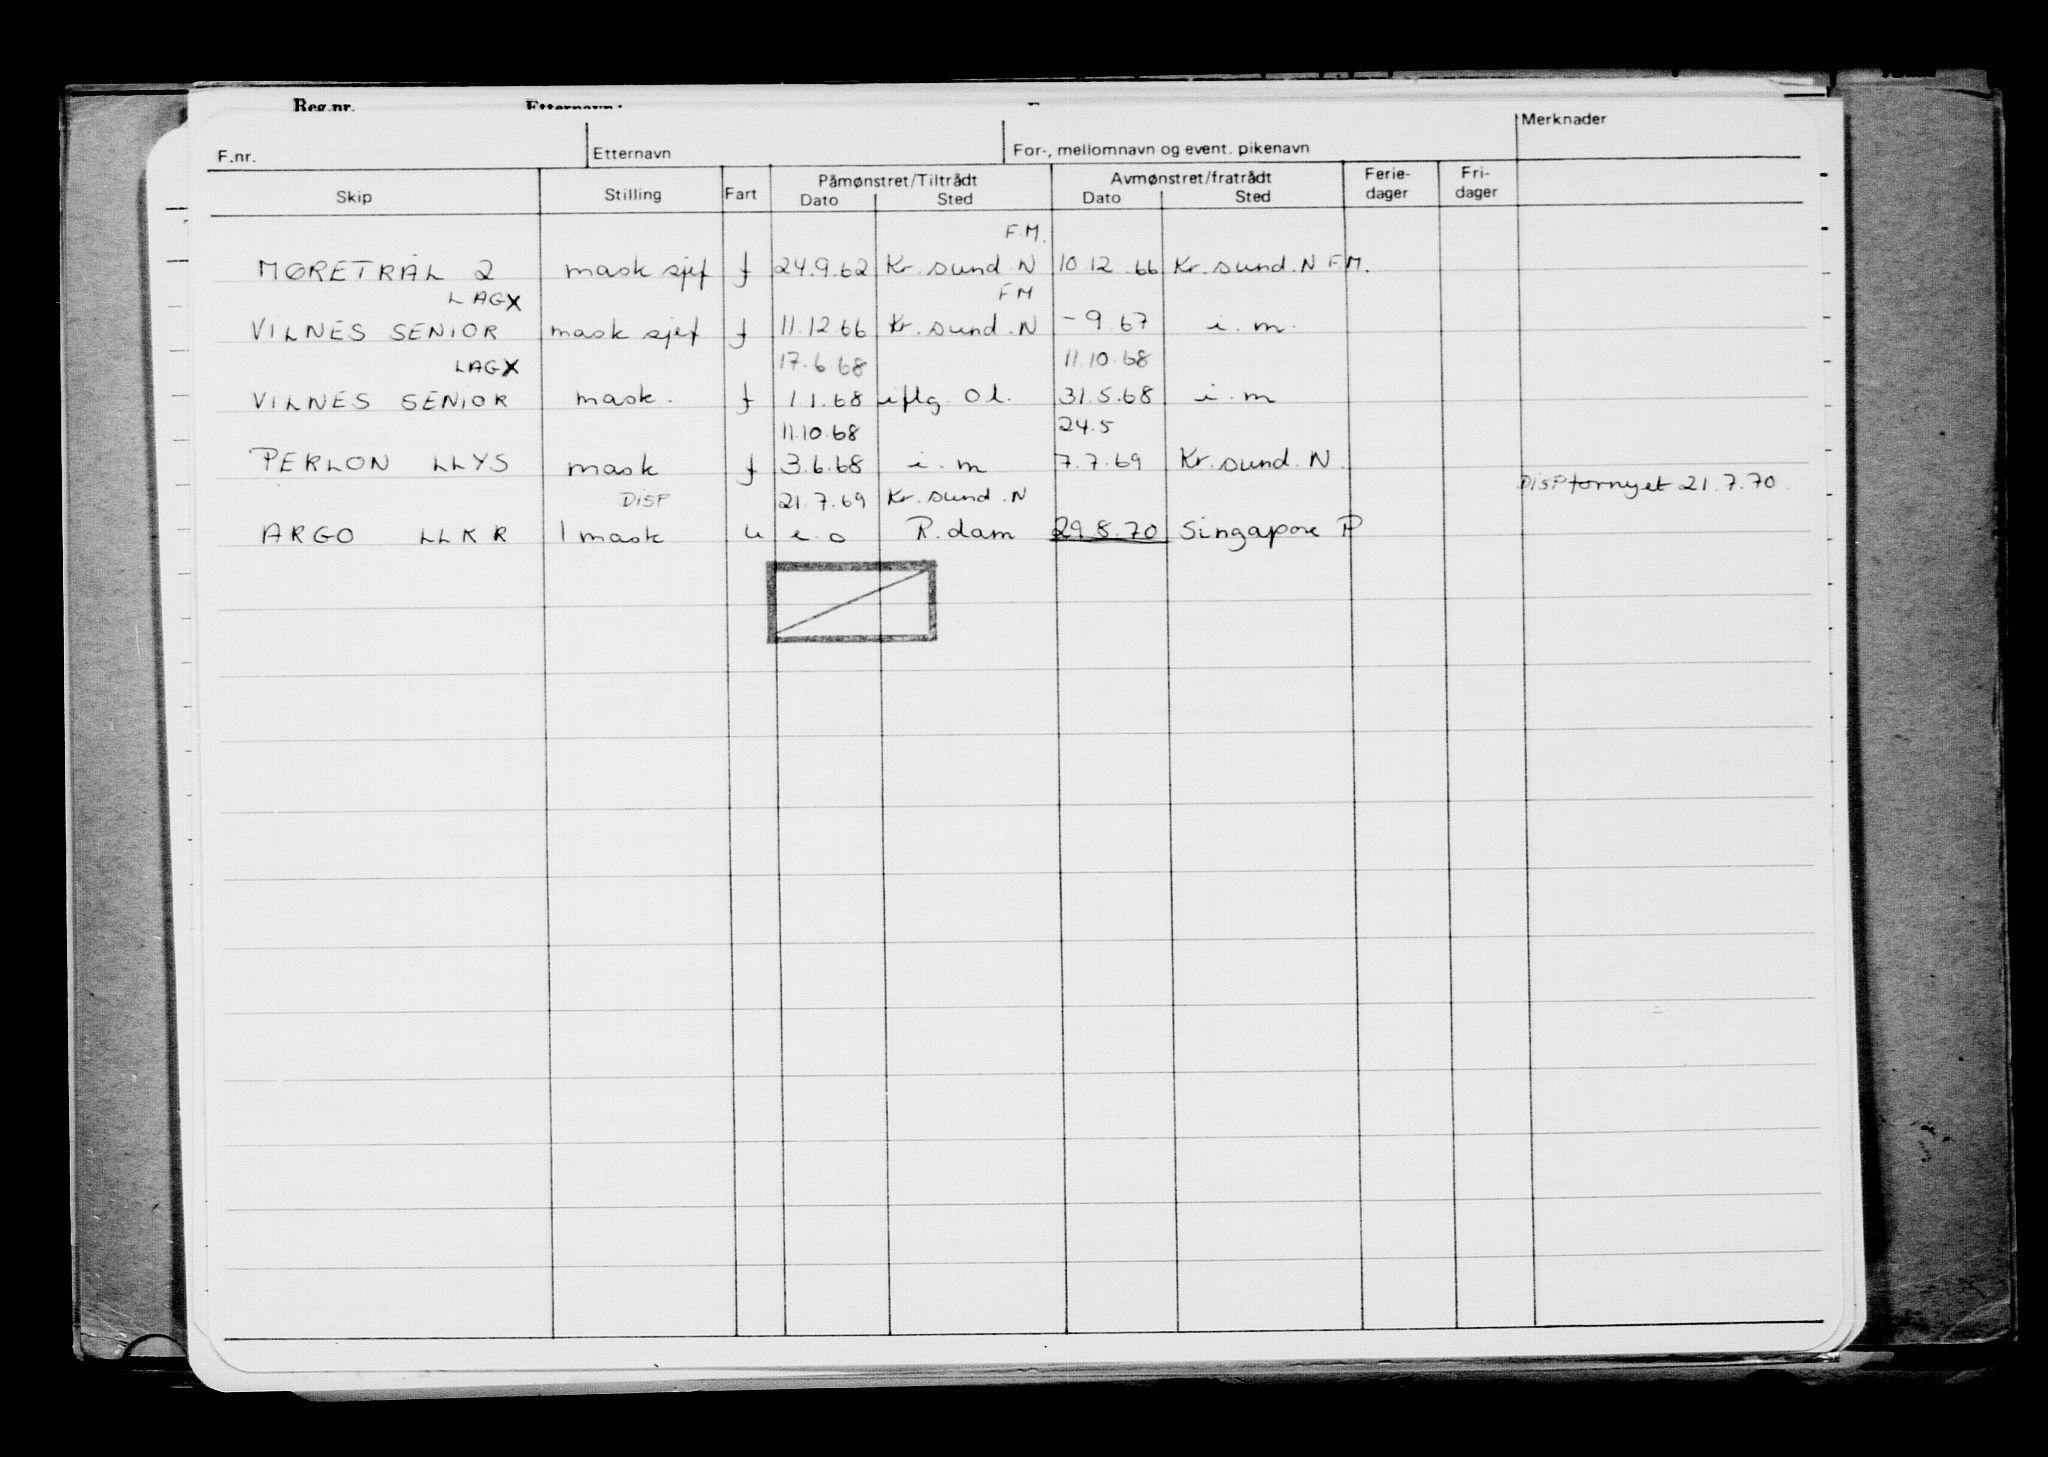 Reg.nr. Etternavn:
F.nr. Etternavn For-, mellomnavn og event. pikenavn Merknader
Skip Stilling Fart Påmønstret/Tiltrådt Avmønstret/fratrådt Ferie- Fri-
Dato Sted Dato Sted dager dager
F.M.
MØRETRÅL 2 mask sjef f 24.9.62 Kr. sund. N 10.12.66 Kr. sund. N F.M.
LAGX FM
VILNES SENIOR mask sjef f 11.12.66 Kr. sund. N -9.67 i.m.
LAGX 17.6.68 11.10.68
VILNES SENIOR mask. f 1.1.68 iflg. Ol. 31.5.68 i.m
11.10.68 24.5
PERLON LLYS mask f 3.6.68 i.m 7.7.69 Kr. sund. N.
DISP 21.7.69 Kr. sund. N DISP fornyet 21.7.70.
ARGO LLKR 1 mask u e.o R.dam 29.8.70 Singapore P